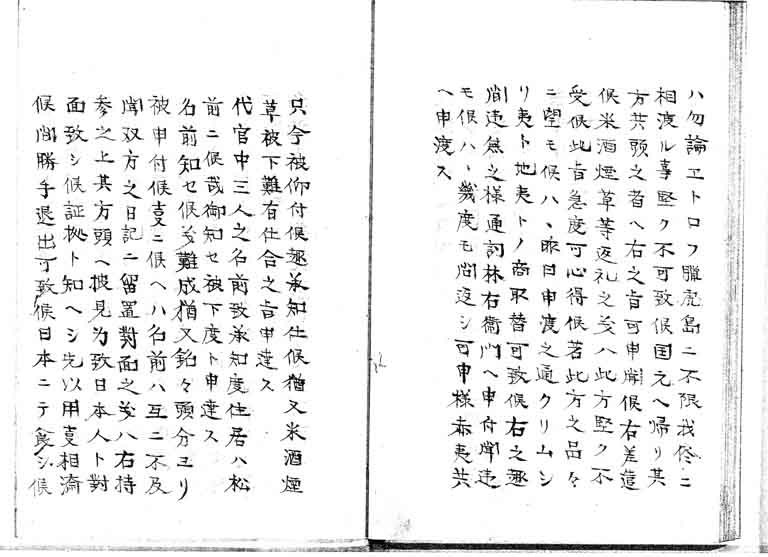 ハ勿論エトロフ臘虎島ニ不限我侭ニ
相渡ル事堅ク不可致候国元ヘ帰リ其
方共頭之者ヘ右之旨可申聞候右差遣
候米酒煙草等返礼之義ハ此方堅ク不
受候此旨急度可心得候若此方之品々
ニ望モ候ハヽ昨日申渡之通クリムシ
リ夷ト地夷トノ商取替可致候右之趣
間違無之様通詞林右衛門ヘ申付聞違
モ候ハヽ幾度モ聞返シ可申様赤夷共
ヘ申渡ス
只今被仰付候趣承知仕候猶又米酒煙
草被下難有仕合之旨申達ス
代官中三人之名前致承知度住居ハ松
前ニ候哉御知セ被下度ト申達ス
名前知セ候義難成猶又銘々頭分ヨリ
被申付候事ニ候ヘハ名前ハ互ニ不及
聞双方之日記ニ留置対面之義ハ右持
参之上其方頭ヘ披見為致日本人ト對
面致シ候証拠ト知ヘシ先以用事相済
候間勝手退出可致候日本ニテ食シ候